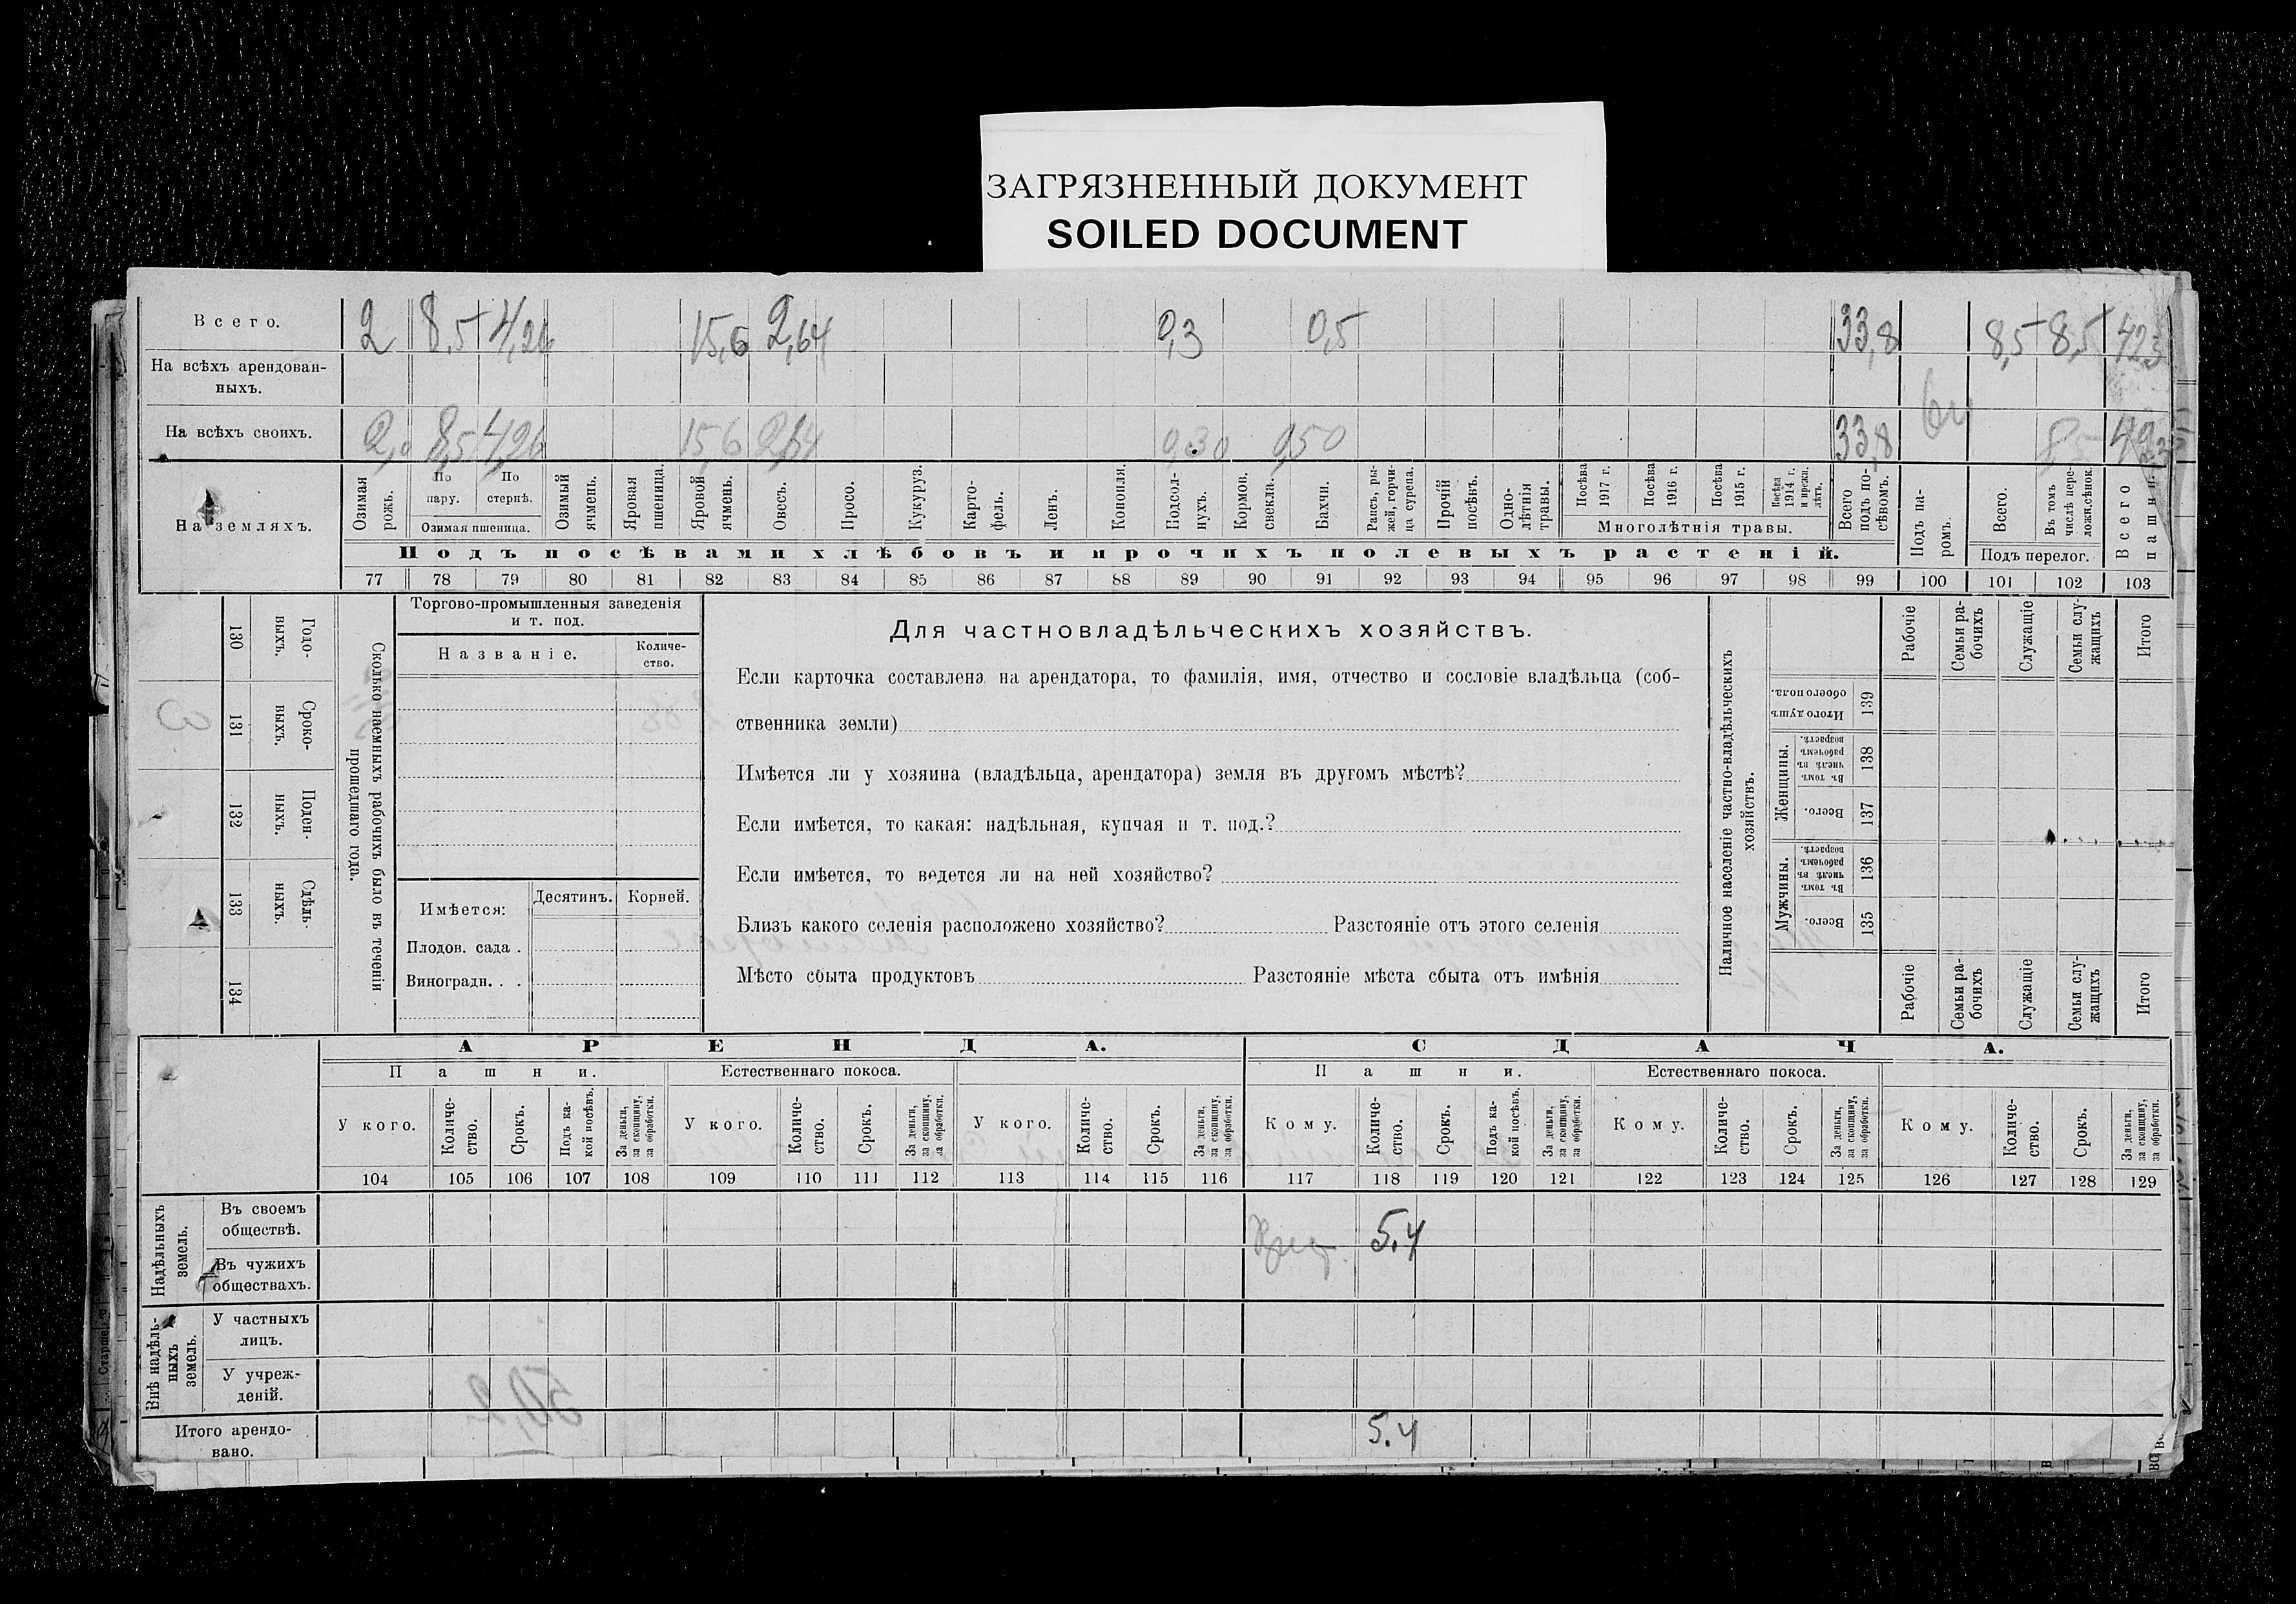 ЗАГРЯЗНЕННЫЙ ДОКУМЕНТ
SOILED DOCUMENT
Всего. 2 8,5 4,26 15,6 2,64 0,3 0,5 33,8 8,5 8,5 42,3
На всѣхъ арендован-
ныхъ.
На всѣхъ своихъ. 2,0 8,5 4,26 15,6 2,64 0,30 0,50 33,8 8,5 42,3
На земляхъ.
Озимая рожь.
По пару.
По стернѣ.
Озимая пшеница.
Озимый ячмень.
Яровая пшеница.
Яровой ячмень.
Овесъ.
Просо.
Кукуруз.
Карто-
фель.
Ленъ.
Конопля.
Подсол-
нухъ.
Кормов. свекла.
Бахчи.
Рапсъ, ры-
жей, горчи-
ца сурепа.
Прочій посѣвъ.
Одно-
лѣтнія травы.
Посѣва 1917 г.
Посѣва 1916 г.
Посѣва 1915 г.
Посѣва 1914 г. и прежн. лѣтъ.
Многолѣтнія травы.
Всего подъ по-
сѣвомъ.
Подъ па-
ромъ.
Всего.
Въ томъ числѣ пере-
ложн.сѣнок.
Подъ перелог.
Всего пашни.
Подъ посѣвами хлѣбовъ и прочихъ полевыхъ растеній.
77 78 79 80 81 82 83 84 85 86 87 88 89 90 91 92 93 94 95 96 97 98 99 100 101 102 103
130 Годо-
выхъ.
131 Сроко-
выхъ.
132 Поден-
ныхъ.
133 Сдѣль-
ныхъ.
134
Сколько наемныхъ рабочихъ было въ теченіи
прошедшаго года.
3
Торгово-промышленныя заведенія
и т. под.
Названіе.
Количе-
ство.
Имѣется:
Десятинъ. Корней.
Плодов. сада .
Виноградн. . .
Для частновладѣльческихъ хозяйствъ.
Если карточка составлена на арендатора, то фамилія, имя, отчество и сословіе владѣльца (соб-
ственника земли)
Имѣется ли у хозяина (владѣльца, арендатора) земля въ другомъ мѣстѣ?
Если имѣется, то какая: надѣльная, купчая и т. под.?
Если имѣется, то ведется ли на ней хозяйство?
Близъ какого селенія расположено хозяйство? Разстояніе отъ этого селенія
Мѣсто сбыта продуктовъ Разстояніе мѣста сбыта отъ имѣнія
Наличное населеніе частно-владѣльческихъ
хозяйствъ.
Рабочіе
Семьи ра-
бочихъ
Служащіе
Семьи слу-
жащихъ
Итого
Итого душъ обоего пола. 139
Женщины.
Въ томъ числѣ въ рабочемъ возрастѣ. 138
Всего. 137
Мужчины.
Въ томъ числѣ въ рабочемъ возрастѣ. 136
Всего. 135
Рабочіе
Семьи ра-
бочихъ
Служащіе
Семьи слу-
жащихъ
Итого
АРЕНДА. СДАЧА.
Пашни. Естественнаго покоса. Пашни. Естественнаго покоса.
У кого.
Количе-
ство.
Срокъ.
Подъ ка-
кой посѣвъ.
За деньги, за скопщину, за обработки.
У кого.
Количе-
ство.
Срокъ.
За деньги, за скопщину, за обработки.
У кого.
Количе-
ство.
Срокъ.
За деньги, за скопщину, за обработки.
Кому.
Количе-
ство.
Срокъ.
Подъ ка-
кой посѣвъ.
За деньги, за скопщину, за обработки.
Кому.
Количе-
ство.
Срокъ.
За деньги, за скопщину, за обработки.
Кому.
Количе-
ство.
Срокъ.
За деньги, за скопщину, за обработки.
104 105 106 107 108 109 110 111 112 113 114 115 116 117 118 119 120 121 122 123 124 125 126 127 128 129
Надѣльныхъ земель.
Въ своемъ
обществѣ.
5.4
Въ чужихъ
обществахъ.
Внѣ надѣль-
ныхъ земель.
У частныхъ
лицъ.
У учреж-
деній.
Итого арендо-
вано.
5.4